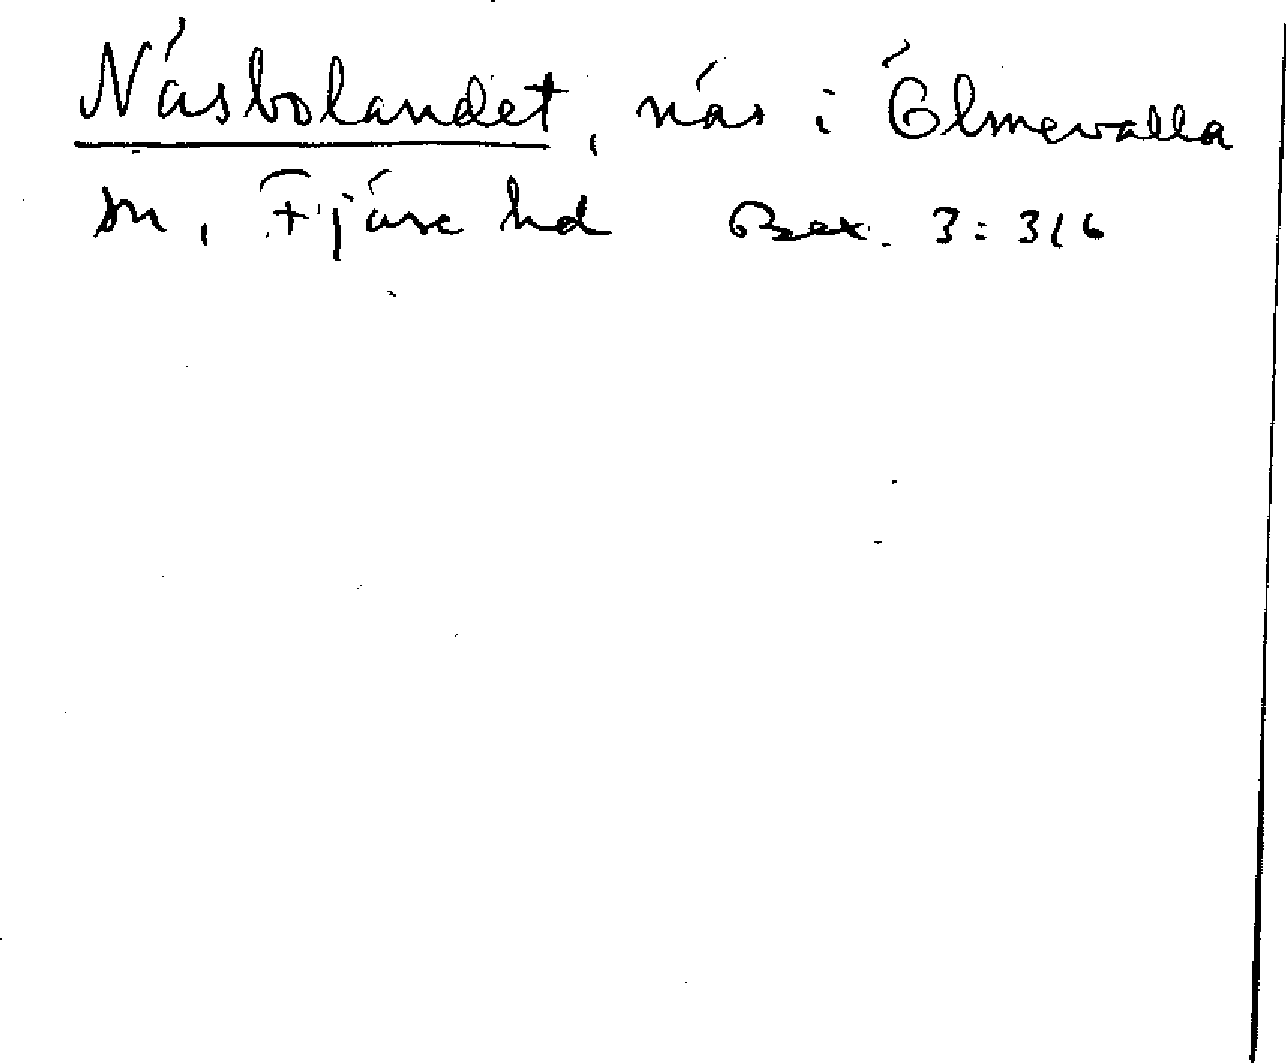 Näsbolandet, näs i Ölmevalla
sn, Fjäre hd Bex. 3:316